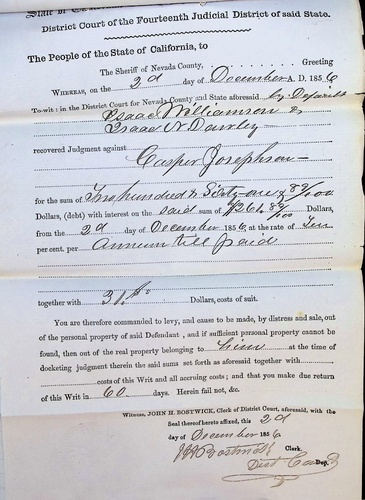 State of California,
District Court of the Fourteenth Judicial District of said State.
The People of the State of California, to
The Sheriff of Nevada County, Greeting
WHEREAS, on the 2d day of December A. D. 1856
To-wit: in the District Court for Nevada County and State aforesaid by Default
Isaac Williamson &
Isaac N Dawley
recovered Judgment against
Casper Josephson
for the sum of Two hundred & Sixty-one & 82/100
Dollars, (debt) with interest on the said sum of $261.82/100 Dollars,
from the 2d day of December 1856, at the rate of Ten
per cent. per Annum till paid
together with Dollars, costs of suit.
You are therefore commanded to levy, and cause to be made, by distress and sale, out
of the personal property of said Defendant , and if sufficient personal property cannot be
found, then out of the real property belonging to him at the time of
docketing judgment therein the said sums set forth as aforesaid together with
costs of this Writ and all accruing costs; and that you make due return
of this Writ in 60 days. Herein fail not, &c.
Witness, JOHN H. BOSTWICK, Clerk of District Court, aforesaid, with the
Seal thereof hereto affixed, this 2d
day of December 1856
J H Bostwick Clerk.
Dep.